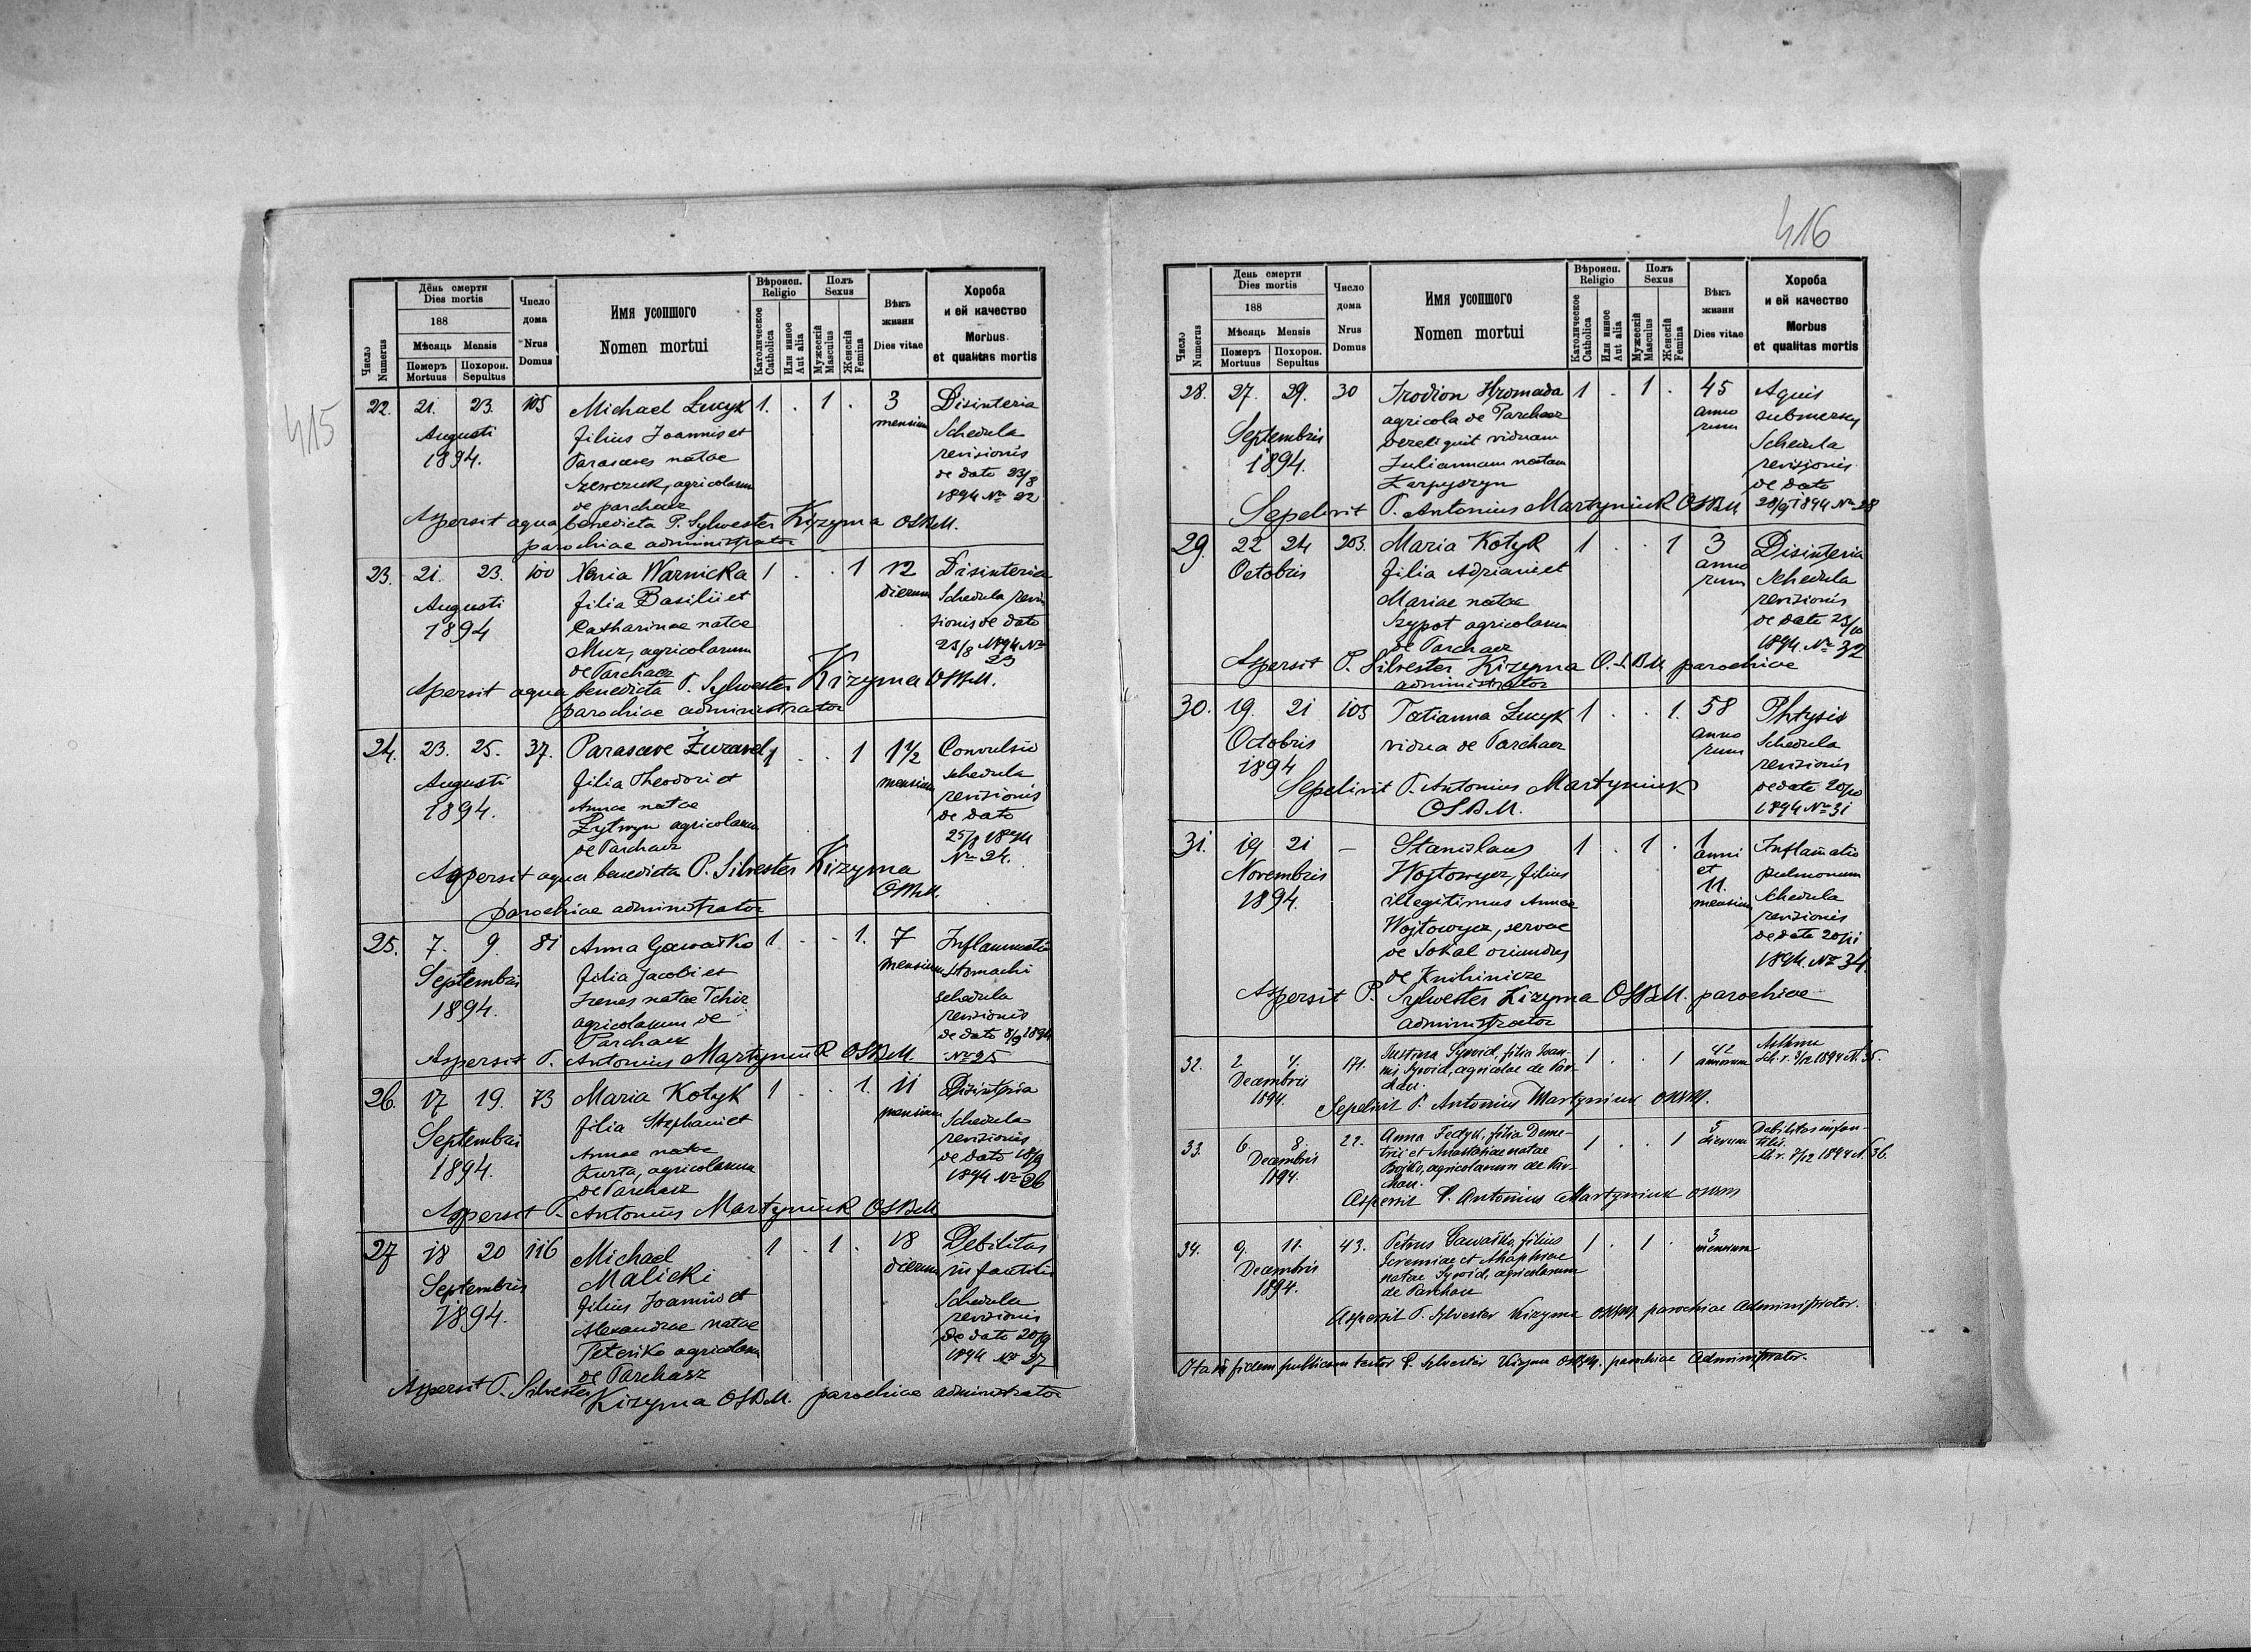 415
Число
Numerus
День смерти
Dies mortis
188
Мѣсяць Mensis
Померъ
Mortuus
Похорон.
Sepultus
Число
дома
Nrus
Domus
Имя усопшого
Nomen mortui
Вѣроисп.
Religio
Католическое
Catholica
Или инное
Aut alia
Полъ
Sexus
Мужескій
Masculus
Женскій
Femina
Вѣкъ
жизни
Dies vitae
Хороба
и ей качество
Morbus
et qualitas mortis
22. 21. 23. 105 Michael Łucyk 1. . 1 . 3 Disinteria
Augusti filius Joannis et mensium Schedula
1894. Parasceves natae revisionis
Szewczuk, agricolarum de dato 23/8
de parchacz 1894 No 22
Aspersit aqua benedicta P. Sylwester Kizyma OSBM.
parochiae administrator
23. 21. 23. 100 Xenia Warnicka 1 . . 1 12 Disinteria
Augusti filia Basilii et dierum Schedula revi
1894 Catharinae natae sionis de dato
Muz, agricolarum 23/8 1894 No
de Parchacz 23
Apersit aqua benedicta P. Sylwester Kizyma OSBM.
parochiae administrator
24. 23. 25. 37. Parasceve Żurawel 1 . . 1 1 1/2 Convulsio
Augusti filia Theodori et mensium schedula
1894. Annae natae revisionis
Łytwyn agricolarum de dato
de Parchacz 25/8 1894
No 24.
Aspersit aqua benedicta P. Silvester Kizyma
OSBM.
parochiae administrator
25. 7. 9. 81 Anna Gawaśko 1 . . 1. 7 Inflammatio
Septembris filia Jacobi et mensium stomachi
1894. Irenes natae Tchir schedula
agricolarum de revisionis
Parchacz de dato 8/9 1894
Aspersit P. Antonius Martyniuk OSBM. No 25
26. 17 19. 73 Maria Kotyk 1 . . 1. 11 Disinteria
Septembris filia Stephani et mensium Schedula
1894. Annae natae revisionis
Kurta, agricolarum de dato 18/9
de Parchacz 1894 No 26
Aspersit P. Antonius Martyniuk OSBM
27 18 20 116 Michael 1 . 1 . 18 Debilitas
Septembris Malicki dierum infantilis
1894. filius Joannis et Schedula
Alexandrae natae revisionis
Peteńko agricolarum de dato 20/9
de Parchacz 1894 No 27
Aspersit P. Silvester
Kizyma OSBM. parochiae administrator
416
Число
Numerus
День смерти
Dies mortis
188
Мѣсяць Mensis
Померъ
Mortuus
Похорон.
Sepultus
Число
дома
Nrus
Domus
Имя усопшого
Nomen mortui
Вѣроисп.
Religio
Католическое
Catholica
Или инное
Aut alia
Полъ
Sexus
Мужескій
Masculus
Женскій
Femina
Вѣкъ
жизни
Dies vitae
Хороба
и ей качество
Morbus
et qualitas mortis
28. 27. 29. 30 Irodion Hromada 1 . 1 . 45 Aquis
Septembris agricola de Parchacz anno submersus
1894. dereliquit viduam rum Schedula
Juliannam natam revisionis
Karpyszyn de dato
Sepelivit P. Antonius Martyniuk OSBM 28/9 1894 No 28
29. 22 24 203. Maria Kotyk 1 . . 1 3 Disinteria
Octobris filia Adriani et anno Schedula
Mariae natae rum revisionis
Szypot agricolarum de dato 23/10
de Parchacz 1894. No 32
Aspersit P. Silvester Kizyma O.S.B.M parochiae
administrator
30. 19. 21 105 Tatianna Łucyk 1 . . 1. 58 Phtysis
Octobris vidua de Parchacz anno Schedula
1894 rum revisionis
Sepelivit P. Antonius Martyniuk de dato 20/10
OSBM. 1894 No 31
31. 19 21 – Stanislaus 1 . 1 . 1 Inflamatio
Novembris Wojtowycz, filius anni et pulmonum
1894. illegitimus Annae 11. Schedula
Wojtowycz, servae mensium revisionis
de Sokal oriundus de dato 20/11
de Knihinicze 1894. No 34.
Aspersit P. Sylwester Kizyma OSBM. parochiae
administrator
32. 2 4. 171. Justina Sywid, filia Joan- 1 . . 1 42 Asthma
Decembris nis Sywid, agricolae de Par- annorum Sch. r. 3/12 1894 N. 35.
1894. chacz.
Sepelivit P. Antonius Martyniuk OSBM.
33. 6 8. 22. Anna Fedyk, filia Deme- 1 . . 1 5 Debilitas infan-
Decembris trii et Anastasiae natae dierum tilis.
1894. Bojko, agricolarum de Par- Sch. r. 7/12 1894 N. 36.
chacz.
Aspersit P. Antonius Martyniuk OSBM
34. 9. 11. 43. Petrus Gawaśko, filius 1 . 1 . 3
Decembris Jeremiae et Ahaphiae mensium
1894. natae Sywid, agricolarum
de Parchacz
Aspersit P. Sylvester Kizyma OSBM parochiae Administrator.
Ita in fidem publicam testor P. Sylvester Kizyma OSBM. parochiae Administrator.